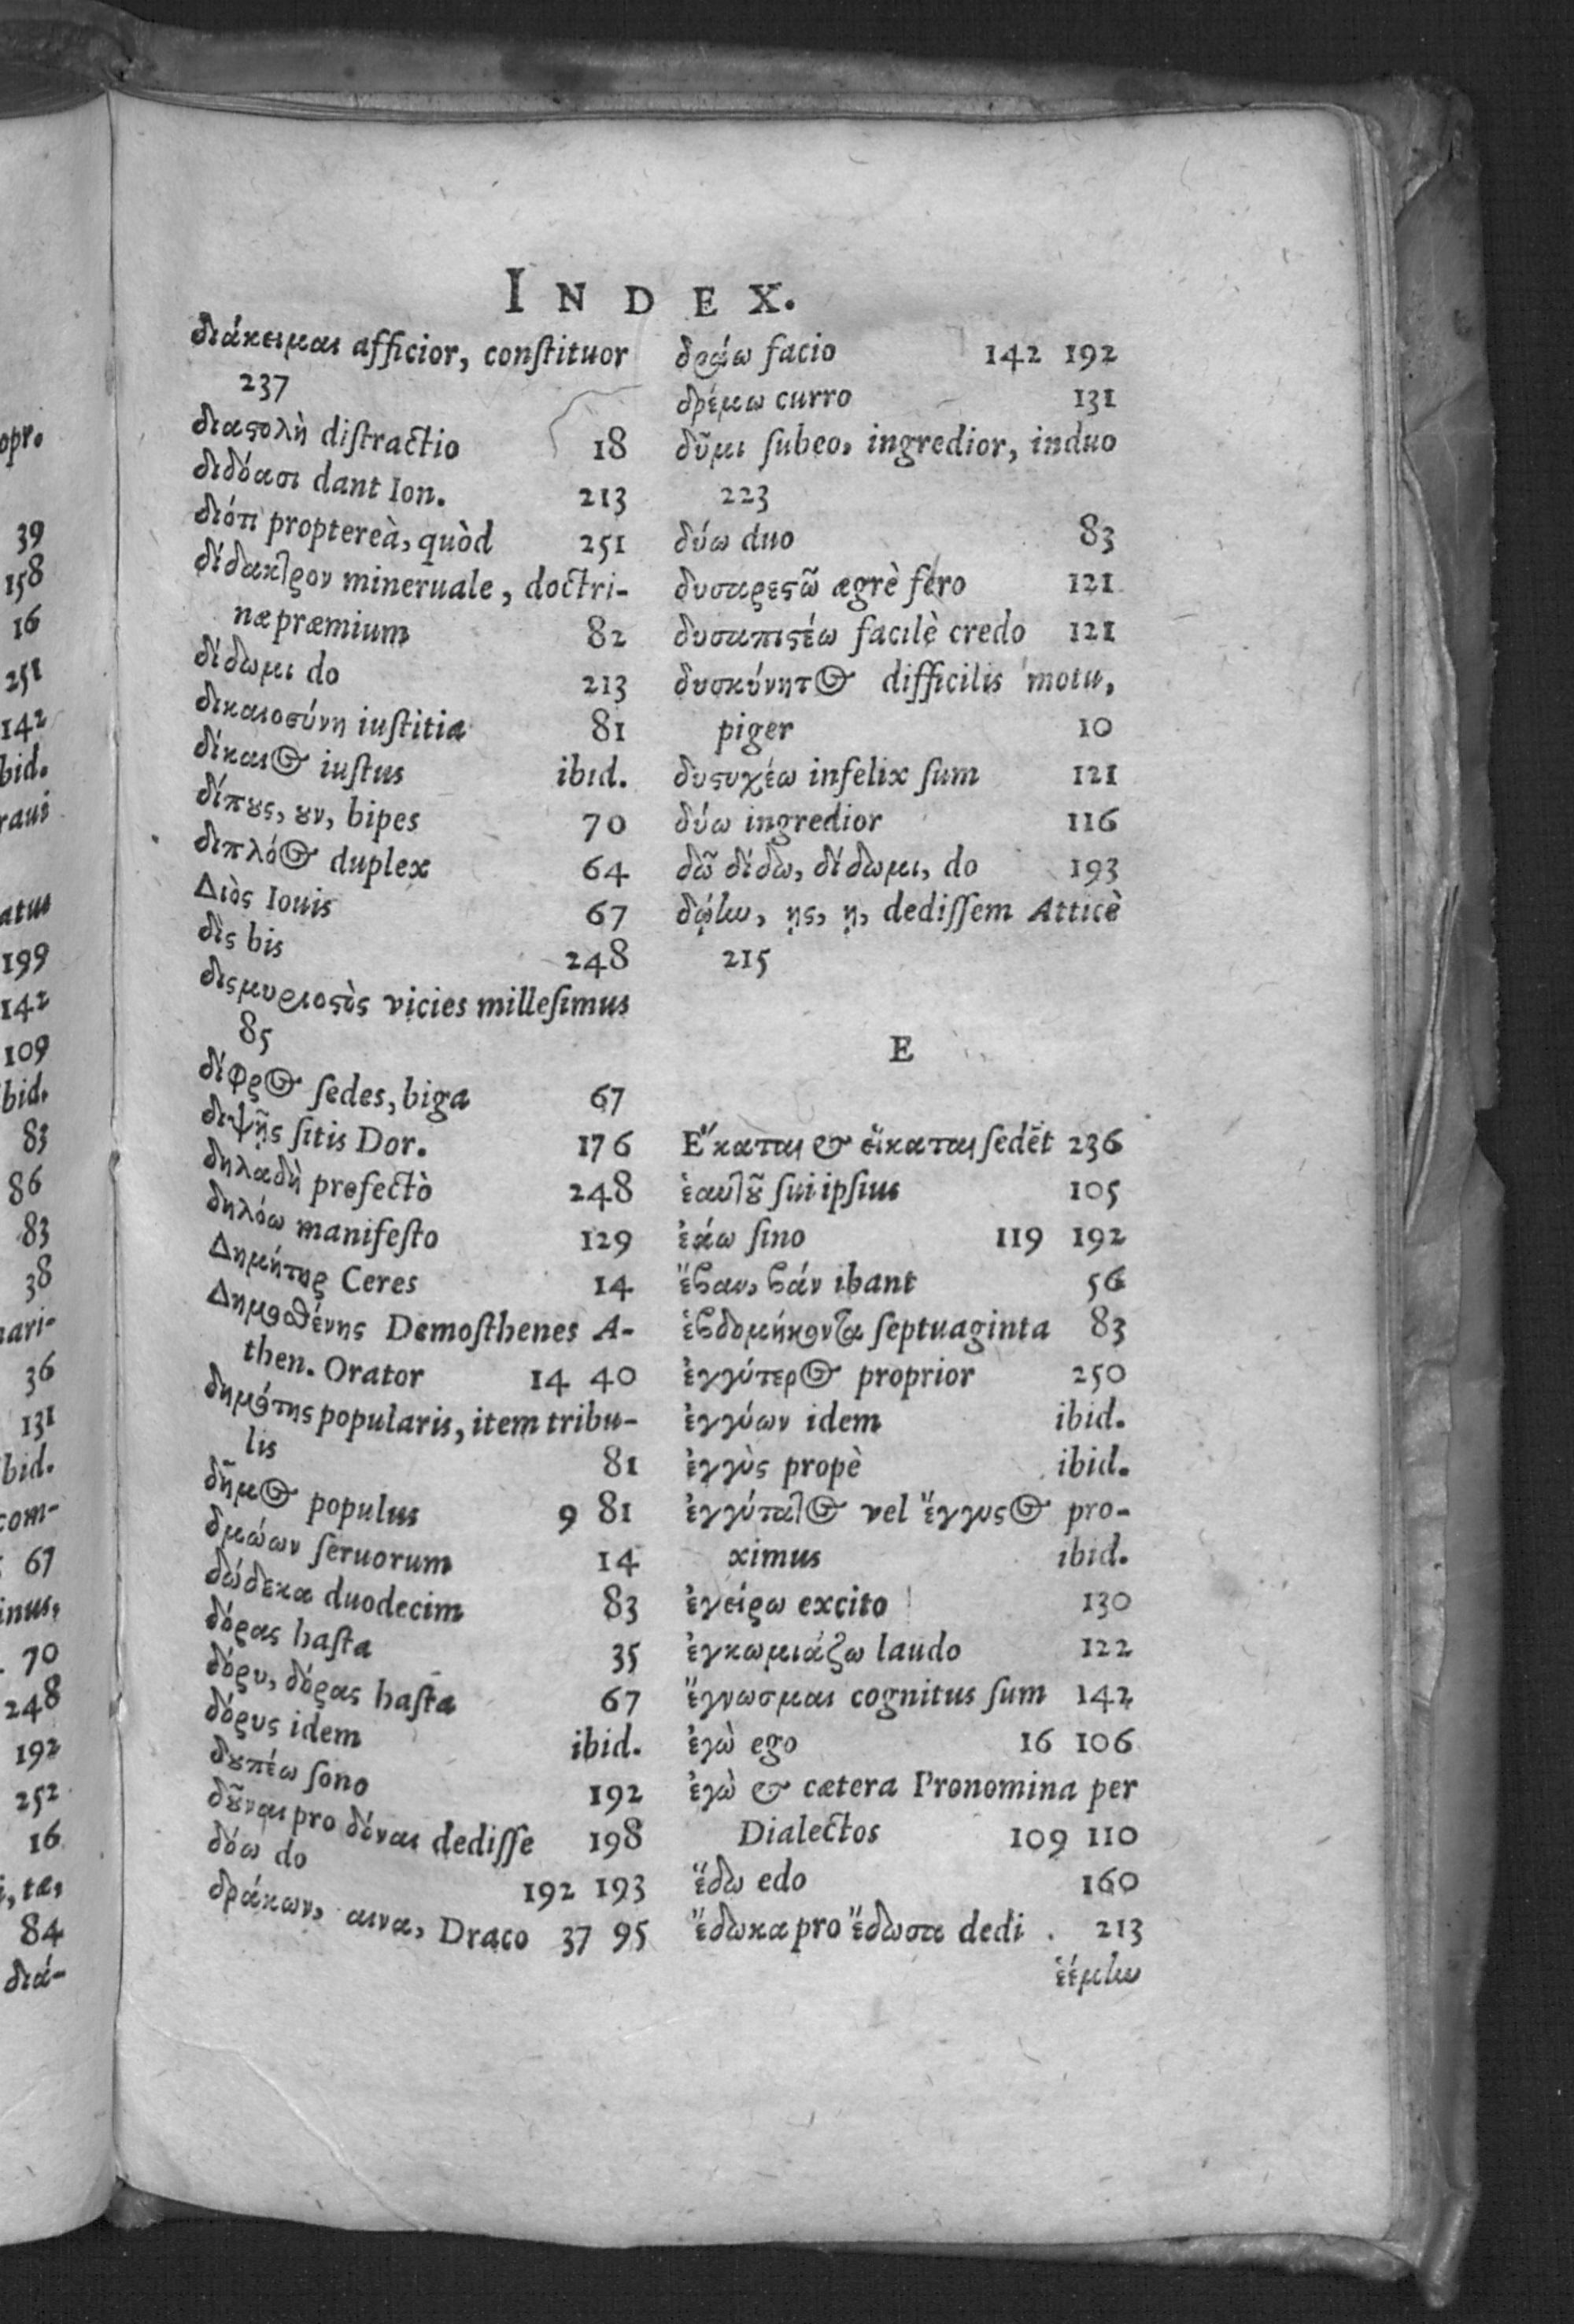 INDEX.
διάκειμαι afficior, conſtituor
237
διαϛολὴ diſtractio 18
διδόασι dant Ion. 213
διότι proptereà, quòd 251
δίδακτρον mineruale, doctri-
næ præmium 82
δίδωμι do 213
δικαιοσύνη iuſtitia 81
δίκαι⊕ iuſtus ibid.
δίπȣς, ȣν, bipes 70
διπλό⊕ duplex 64
Διὸς Iouis 67
δὶς bis 248
διςμυριοϛὸς vicies milleſimus
85
δίφρ⊕ ſedes, biga 67
διψῆς ſitis Dor. 176
δηλαδὴ profectò 248
δηλόω manifeſto 129
Δημήτηρ Ceres 14
Δημοσθένης Demoſthenes A-
then. Orator 14 40
δημότης popularis, item tribu-
lis 81
δῆμ⊕ populus 9 81
δμώων ſeruorum 14
δώδεκα duodecim 83
δόρας haſta 35
δόρυ, δόρας haſta 67
δόρυς idem ibid.
δȣπέω ſono 192
δȣ͂ναι pro δόναι dediſſe 198
δόω do 192 193
δράκων, αινα, Draco 37 95
δράω facio 142 192
δρέμω curro 131
δῦμι ſubeo, ingredior, induo
223
δύω duo 83
δυσαρεϛῶ ægrè fero 121
δυσαπιϛέω facilè credo 121
δυσκύνητ⊕ difficilis motu,
piger 10
δυϛυχέω infelix ſum 121
δύω ingredior 116
δῶ δίδω, δίδωμι, do 193
δῴην, ῃς, ῃ, dediſſem Atticè
215
E
Ἕκαται & εἵκαται ſedēt 236
ἑαυτȣ͂ ſui ipſius 105
ἐάω ſino 119 192
ἔβαν, βάν ibant 56
ἑβδομήκοντα ſeptuaginta 83
ἐγγύτερ⊕ proprior 250
ἐγγύων idem ibid.
ἐγγὺς propè ibid.
ἐγγύτατ⊕ vel ἔγγυς⊕ pro-
ximus ibid.
ἐγείρω excito 130
ἐγκωμιάζω laudo 122
ἔγνωσμαι cognitus ſum 142
ἐγὼ ego 16 106
ἐγὼ & cætera Pronomina per
Dialectos 109 110
ἔδω edo 160
ἔδωκα pro ἔδωσα dedi 213
ἑέμην
opr.
39
158
16
251
142
bid.
raui
atus
199
142
109
bid.
83
86
83
38
nari-
36
131
bid.
com-
67
inus,
70
248
192
252
16
i, tæ,
84
διά-